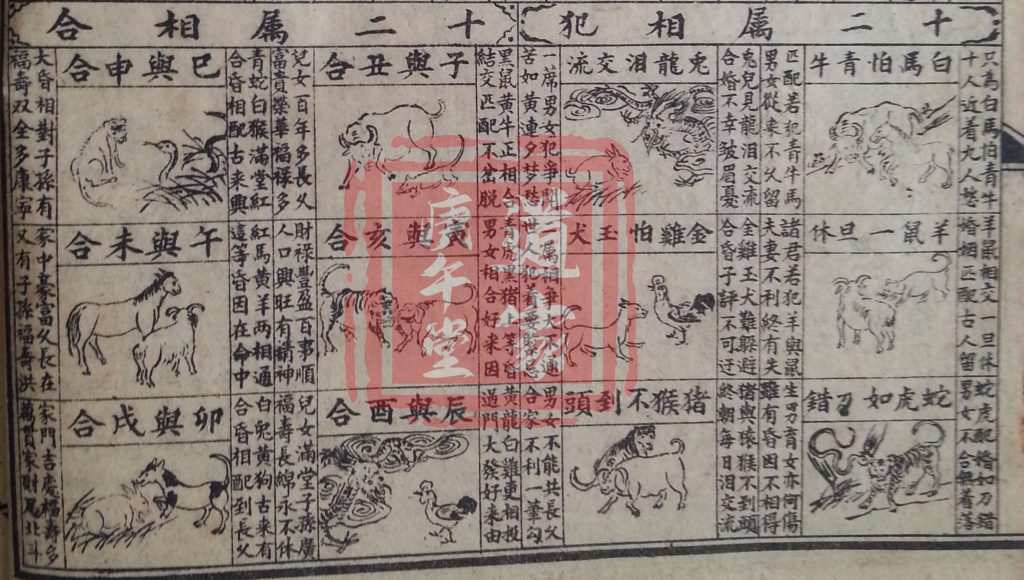 十二属相犯
白馬怕青牛
只為白馬怕青牛
十人近着九人愁
匹配若犯青牛馬
男女從來不久留
兎龍泪交流
兎兒見龍泪交流
合婚不幸皱眉憂
一席男女犯爭鬪
苦如黄連夕梦愁
羊鼠一旦休
羊鼠相交一旦休
婚姻匹配古人留
諸君若犯羊與鼠
夫妻不利終有失
金雞怕玉犬
金雞玉犬難躲避
合昏子評不可迂
蛇虎如刀錯
蛇虎配婚如刀錯
男女不合無着落
生男育女亦何傷
雖有昏因不相得
猪猴不到頭
猪與猿猴不到頭
終朝每日泪交流
男女不能共長久
合家不利一筆勾
十二属相合
子與丑合
黑鼠黄牛正相合
結交匹配不岔脱
兒女百年多長久
富貴榮華福禄多
巳與申合
青蛇白猴滿堂紅
合昏相配古來興
大昏相對子孫有
福壽双全多康寧
寅與亥合
青虎黑猪
男女相合好來因
財禄豐盈百事順
人口興旺有精神
午與未合
紅馬黄羊兩相通
這等昏因在命中
家中豪富久長在
又有子孫福壽洪
辰與酉合
黄龍白雞更相投
過門大發好來由
兒女滿堂子孫廣
福壽長綿永不休
卯與戌合
白兎黄狗古來有
合昏相配到長久
家門吉慶福壽多
萬貫家財尾北斗
道一家
庚午堂